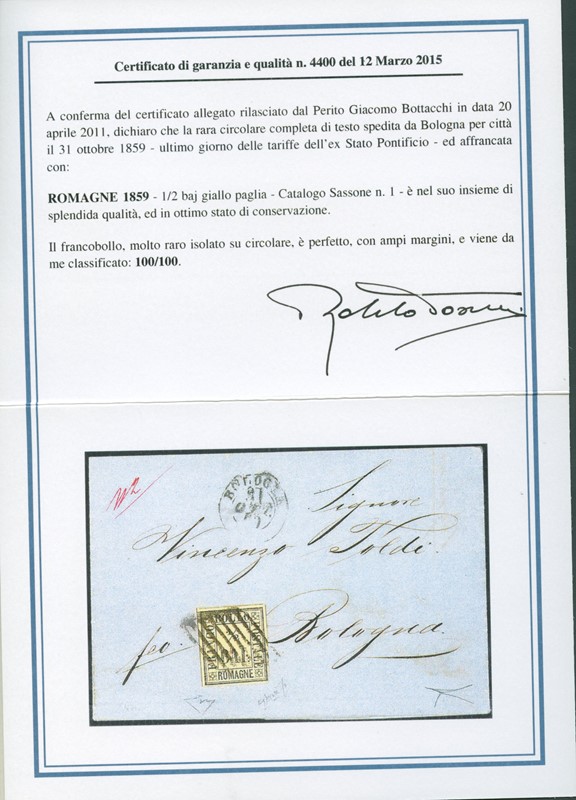 Certificato di garanzia e qualità n. 4400 del 12 Marzo 2015
A conferma del certificato allegato rilasciato dal Perito Giacomo Bottacchi in data 20
aprile 2011, dichiaro che la rara circolare completa di testo spedita da Bologna per città
il 31 ottobre 1859 - ultimo giorno delle tariffe dell'ex Stato Pontificio - ed affrancata
con:
ROMAGNE 1859 - 1/2 baj giallo paglia - Catalogo Sassone n. 1 - è nel suo insieme di
splendida qualità, ed in ottimo stato di conservazione.
Il francobollo, molto raro isolato su circolare, è perfetto, con ampi margini, e viene da
me classificato: 100/100.
BOLOGNA
Signore
Vincenzo Toldi.
Bologna.
BOLLO
ROMAGNE